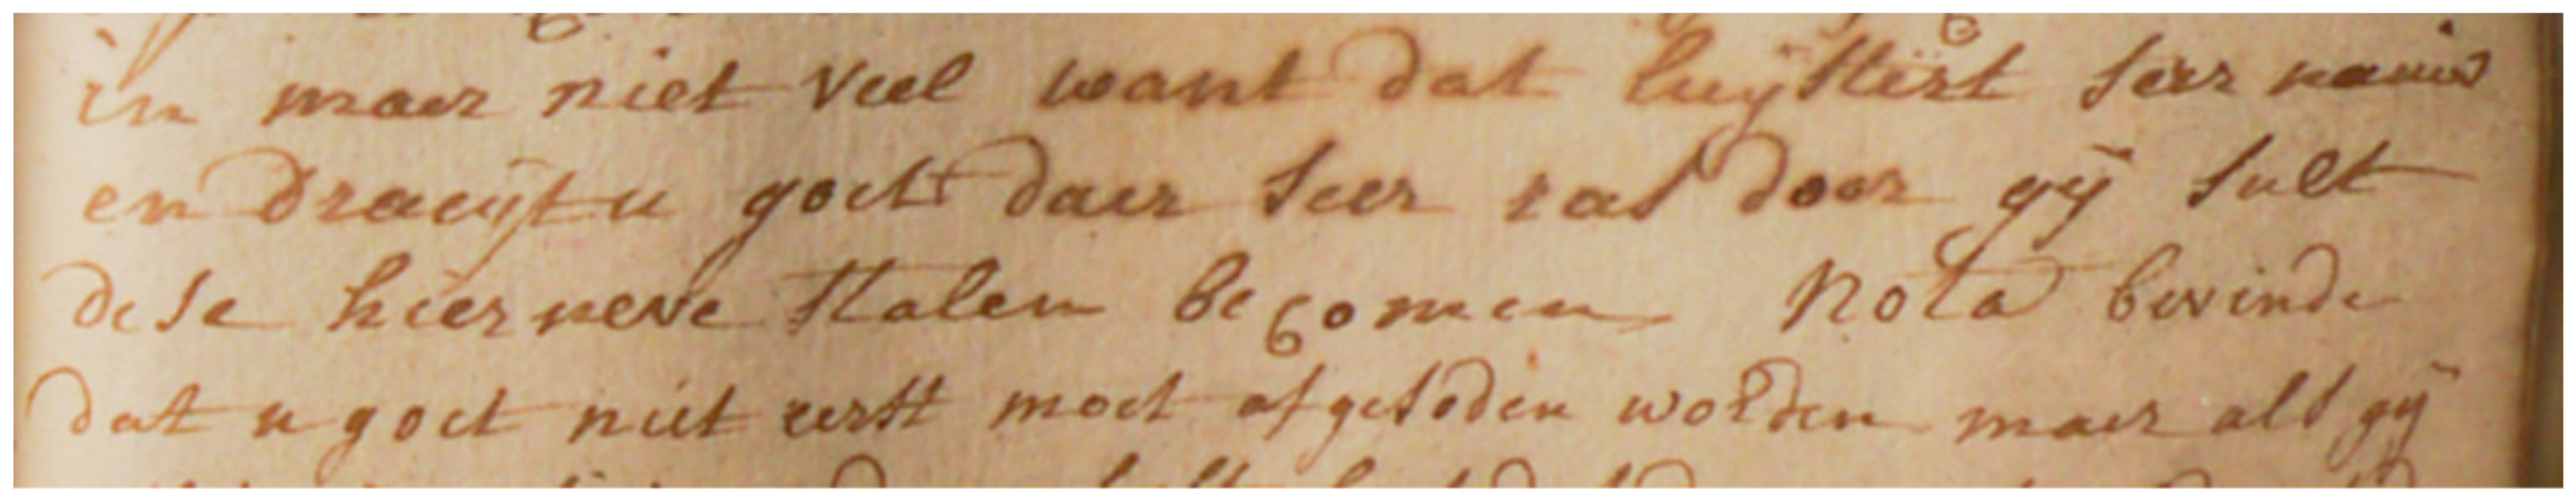 in maer niet veel want dat luÿstert seer nauw
en draeijt u goet daer seer ras door gÿ sult
dese hier neve stalen becomen Nota bevinde
dat u goet niet eerst moet afgesoden worden maer als gÿ